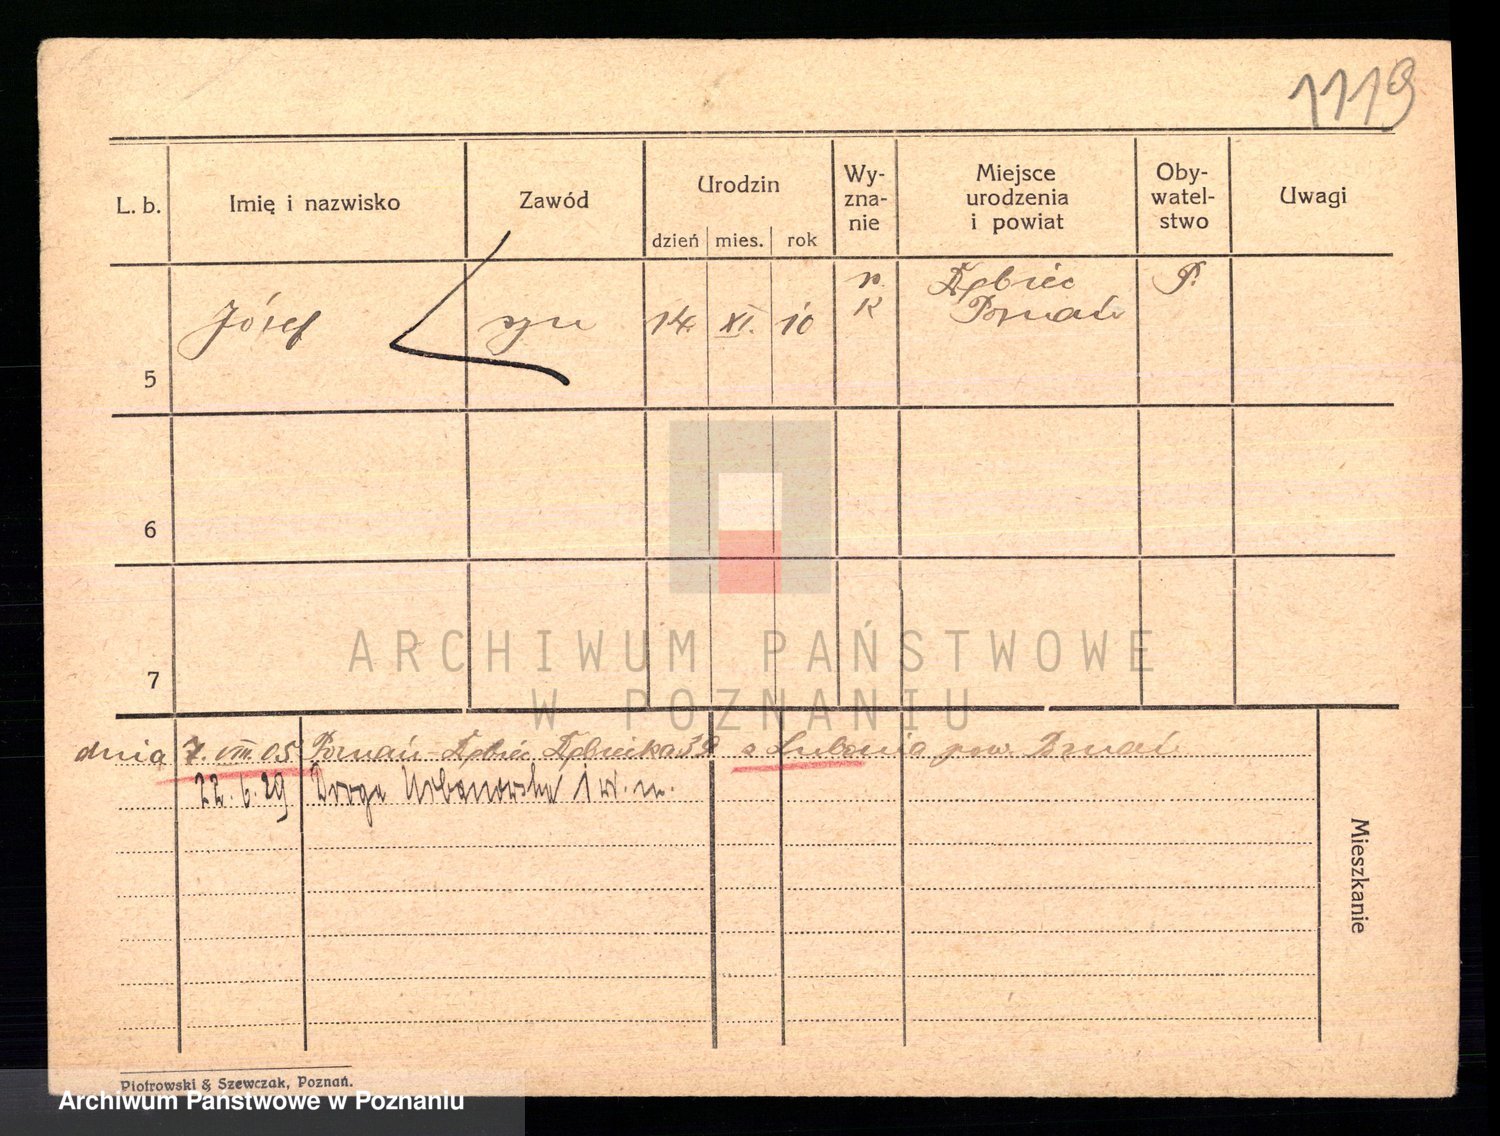 1119
L. b. Imię i nazwisko Zawód Urodzin Wy-zna-nie Miejsce urodzenia i powiat Oby-watel-stwo Uwagi
dzień mies. rok
5 Józef syn 14. XI. 10 r. K Dębiec Poznań P.
6
7
ARCHIWUM PAŃSTWOWE
W POZNANIU
dnia 7. VIII. 05 Poznań-Dębiec Dębiecka 39 z Lubonia pow. Poznań
22. 6. 29 Droga Urbanowska 1 w. m.
Mieszkanie
Piotrowski & Szewczak, Poznań.
Archiwum Państwowe w Poznaniu